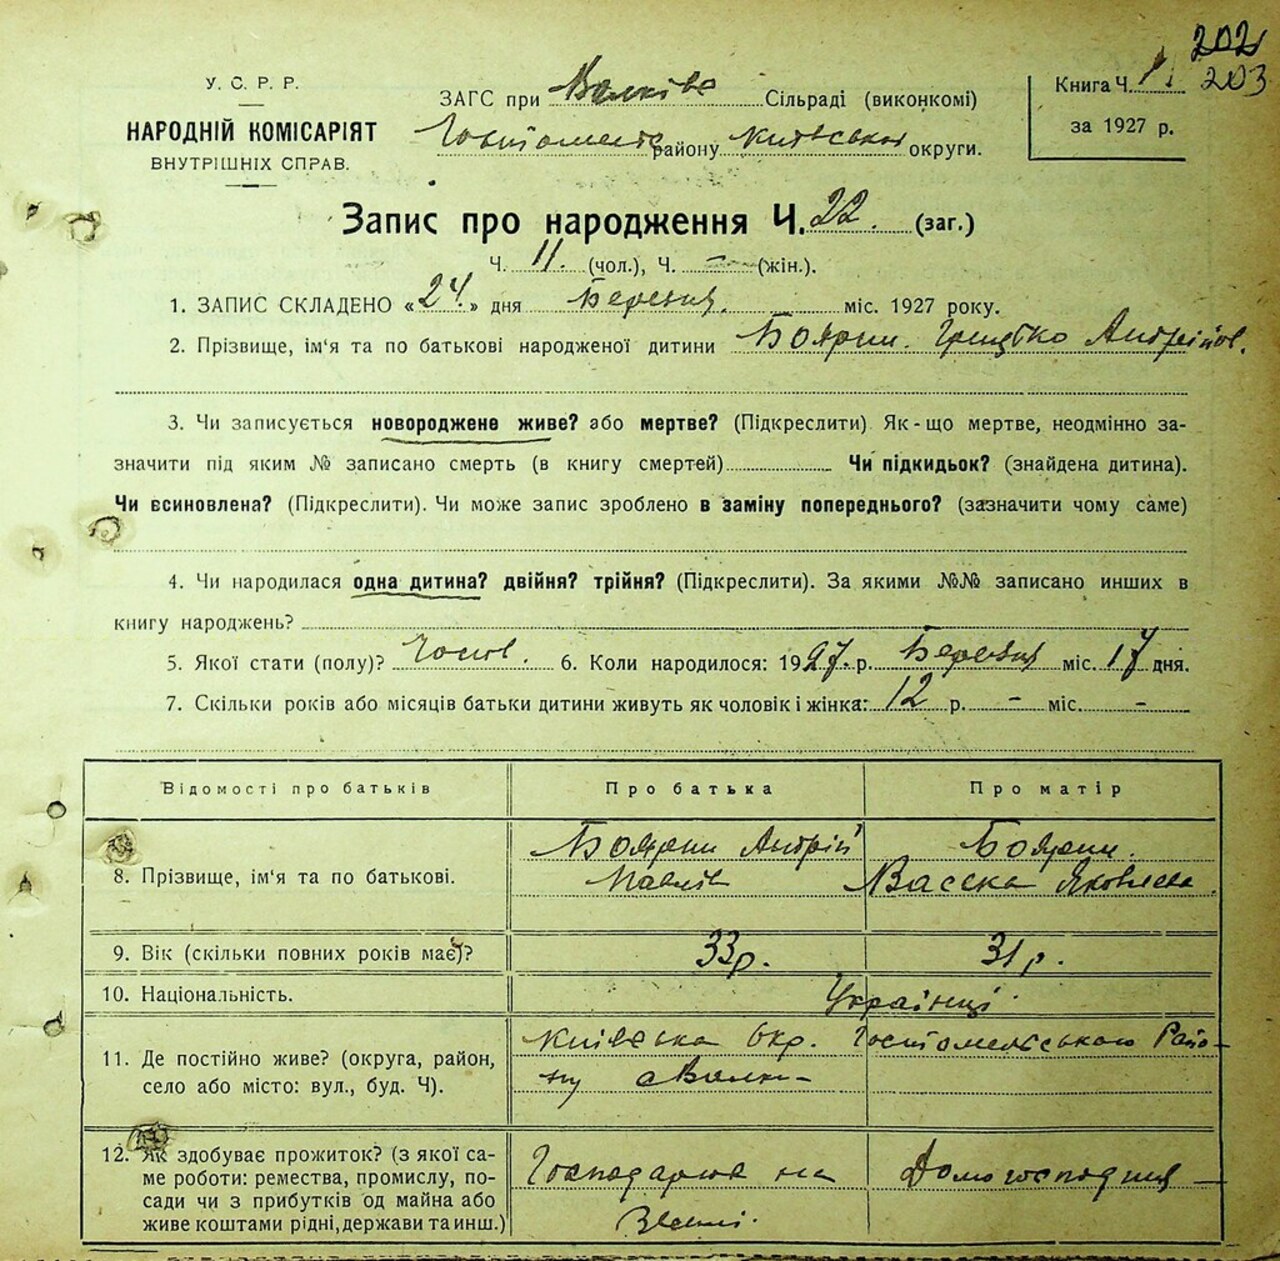 202
203
У. С. Р. Р.
НАРОДНІЙ КОМІСАРІЯТ
ВНУТРІШНІХ СПРАВ.
ЗАГС при Сільраді (виконкомі)
району Київської округи.
Книга Ч. 1.
за 1927 р.
Запис про народження Ч. 22. (заг.)
Ч. 11. (чол.), Ч. — (жін.).
1. ЗАПИС СКЛАДЕНО «24.» дня Березня. міс. 1927 року.
2. Прізвище, ім'я та по батькові народженої дитини Боярин. Грицько Андрійов.
3. Чи записується новороджене живе? або мертве? (Підкреслити) Як-що мертве, неодмінно за-
значити під яким № записано смерть (в книгу смертей) Чи підкидьок? (знайдена дитина).
Чи всиновлена? (Підкреслити). Чи може запис зроблено в заміну попереднього? (зазначити чому саме)
4. Чи народилася одна дитина? двійня? трійня? (Підкреслити). За якими №№ записано инших в
книгу народжень?
5. Якої стати (полу)? Чолов. 6. Коли народилося: 1927. р. Березня міс. 17 дня.
7. Скільки років або місяців батьки дитини живуть як чоловік і жінка: 12 р. – міс. –
Відомості про батьків Про батька Про матір
8. Прізвище, ім'я та по батькові. Боярин Андрій Павлів Боярин. Васска Яковлева.
9. Вік (скільки повних років має)? 33 р. 31 р.
10. Національність. Українці.
11. Де постійно живе? (округа, район, Київська Окр. Гостомельського Райо-
село або місто: вул., буд. Ч). ну
12. Як здобуває прожиток? (з якої са-
ме роботи: ремества, промислу, по-
сади чи з прибутків од майна або
живе коштами рідні, держави та инш.)
Господарює на
Землі.
Домогосподиня